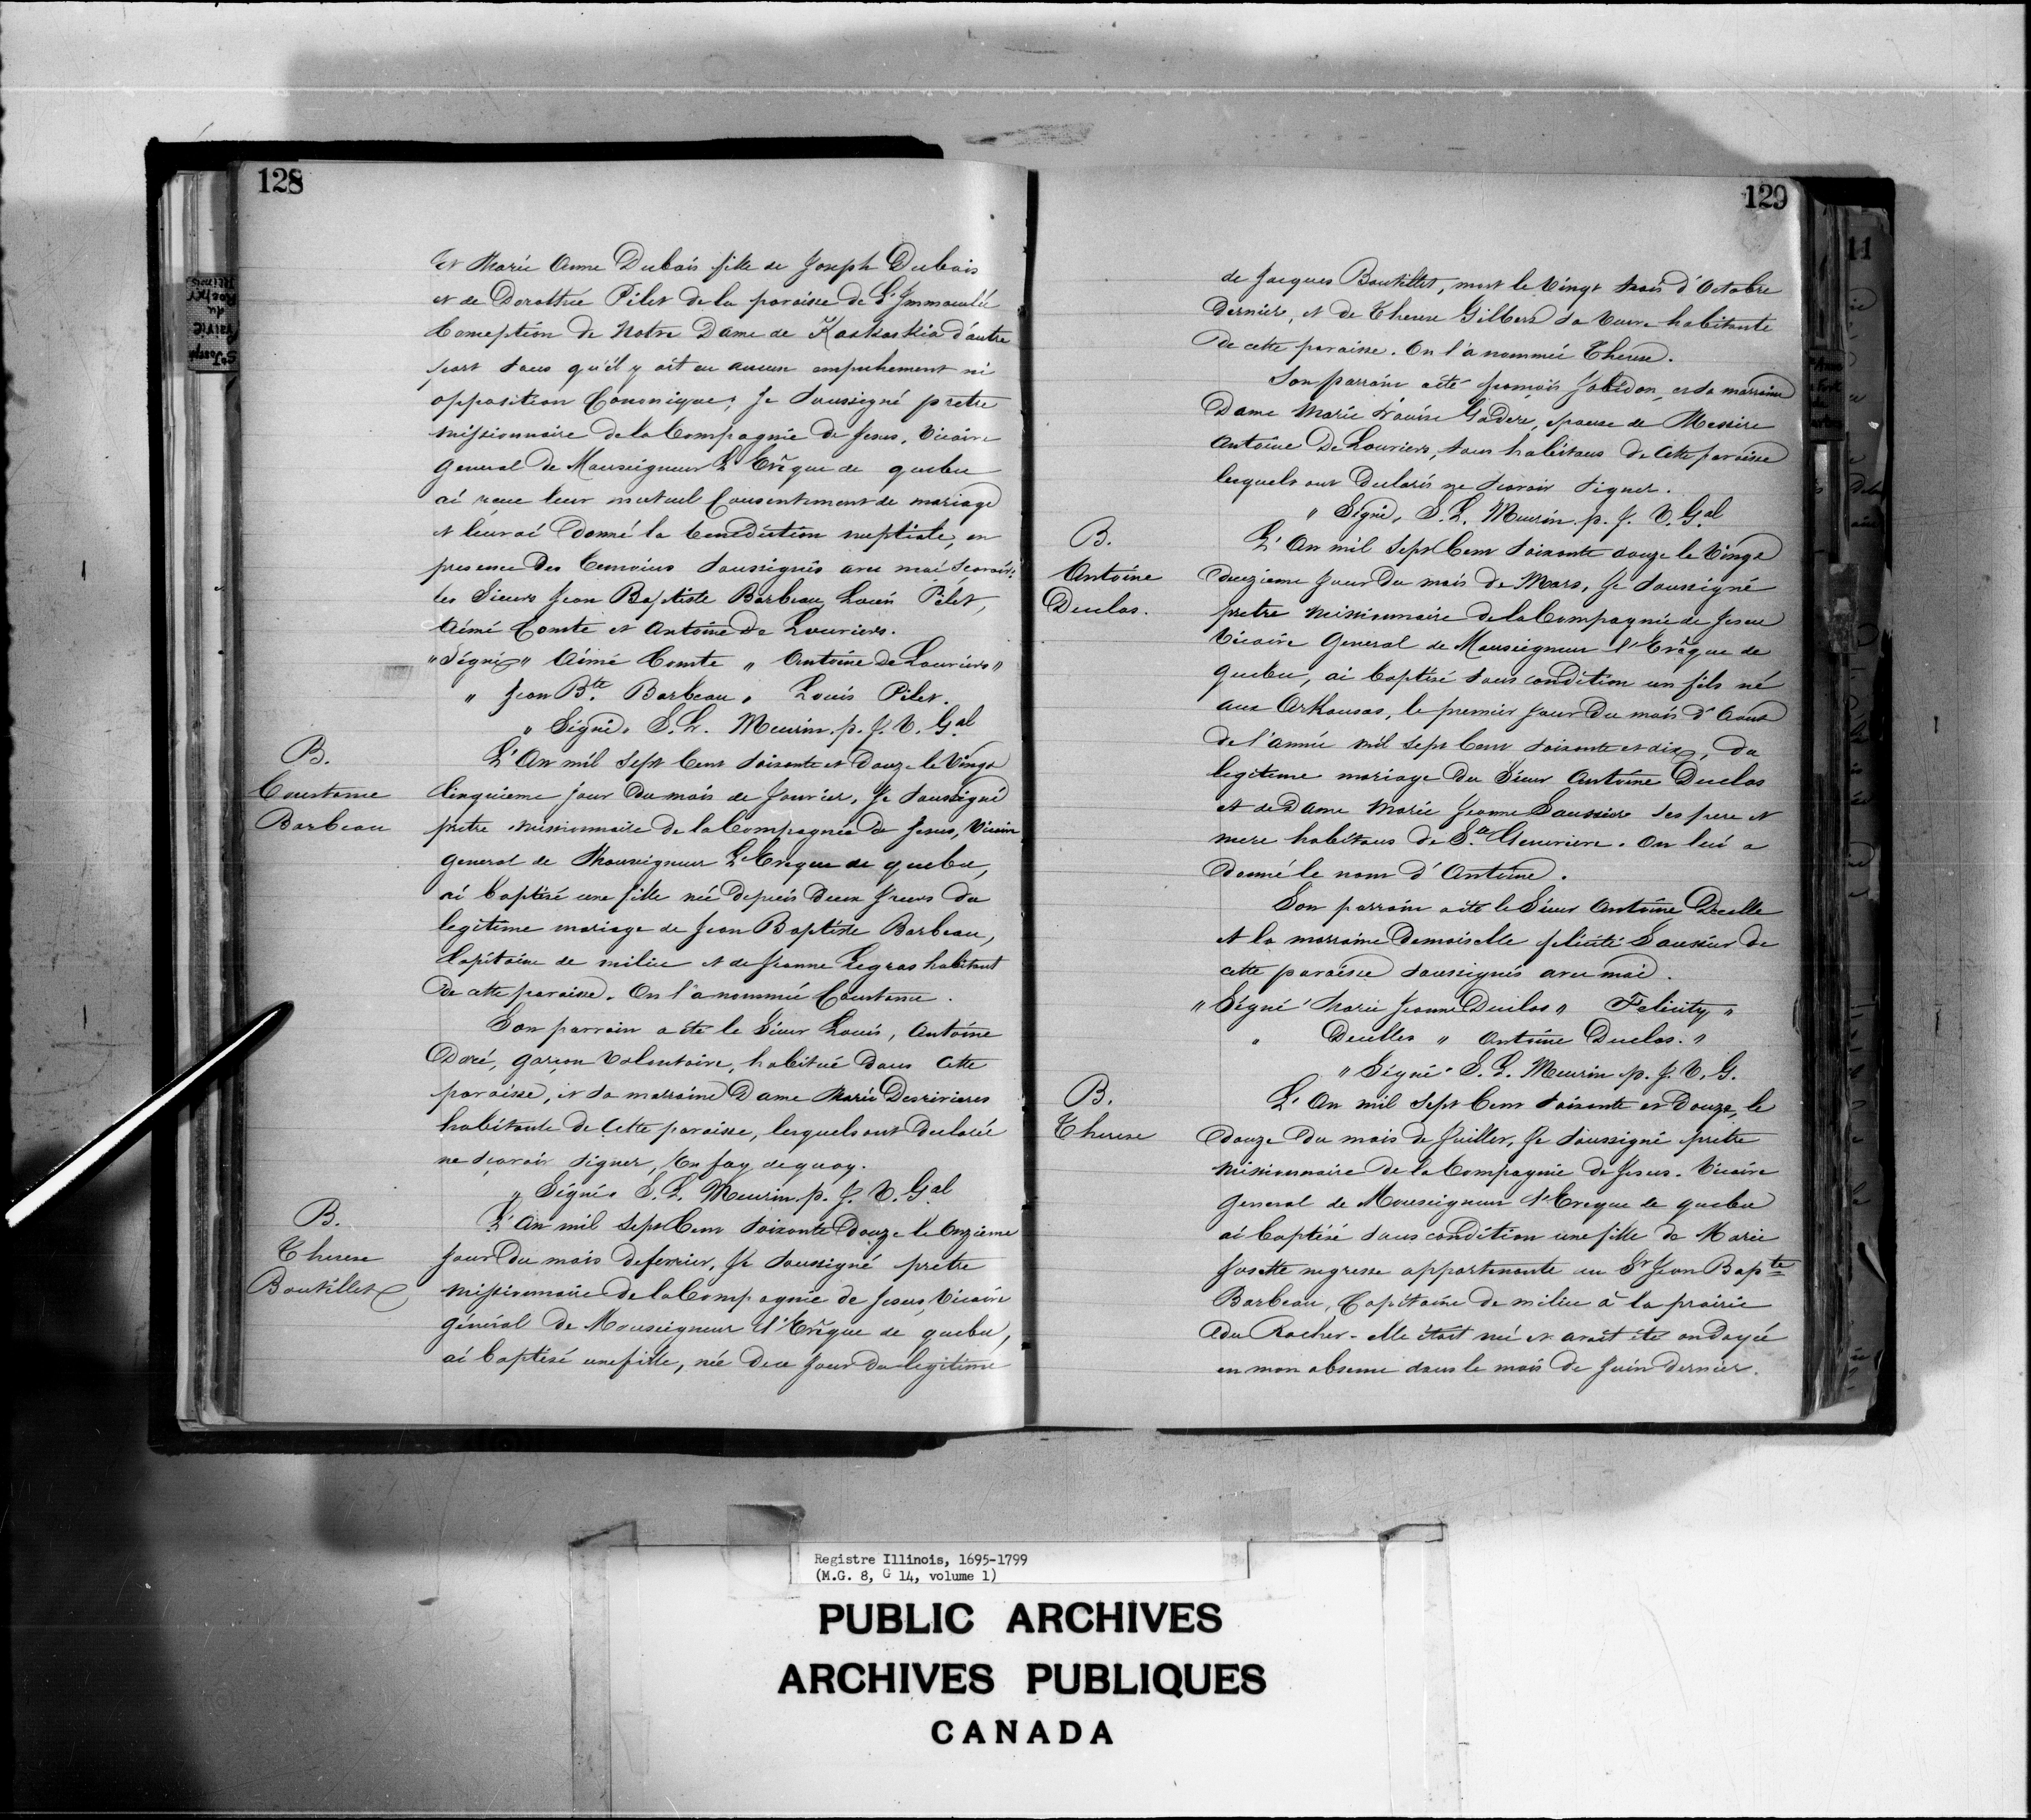 128
Et Marie Anne Dubois fille de Joseph Dubois
et de Dorothée Pilet de la paroisse de L'Immaculée
Conception de Notre Dame de Kaskaskia d'autre
part sans qu'il y ait eu aucun empechement ni
opposition Canonique; Je soussigné pretre
Missionnaire de la Compagnie de Jesus, Vicaire
General de Monseigneur L'Evêque de quebec
ai recue leur mutuel Consentement de mariage
et leur ai Donné la Benediction nuptiale, en
presence Des temoins soussignés avec moi scavoir:
les Sieurs Jean Baptiste Barbeau, Louis Pilet,
Aimé Comte et Antoine De Louviers.
"Signé" Aimé Comte " Antoine De Louviers"
" Jean Bte. Barbeau " Louis Pilet.
" Signé, S. L. Meurin. p. J. V. Gal
B.
Constance
Barbeau
L'An mil Sept Cent soixante et Douze le Vingt
Cinquieme jour du mois de Janvier, Je soussigné
pretre Missionnaire de la Compagnie de Jesus, Vicaire
General de Monseigneur L'Eveque de quebec,
ai baptisé une fille née depuis Deux Jours du
legitime mariage de Jean Baptiste Barbeau,
Capitaine de milice et de Jeanne Legras habitant
De cette paroisse. On l'a nommée Constance.
Son parrain a été le Sieur Louis, Antoine
Doré, garçon Volontaire, habitué dans cette
paroisse, et sa marraine Dame Marie Desrivieres
habitante de Cette paroisse, lesquels ont Declarée
ne scavoir signer, En foy de quoy.
" Signés S. L. Meurin. p. J. V. Gal
B.
Therese
Boutillet
L'An mil Sept Cent soixante Douze le Onzieme
Jour Du mois de fevrier, Je soussigné pretre
Missionnaire de la Compagnie de Jesus, Vicaire
général De Monseigneur l'Evêque de quebec,
ai baptisé une fille, née de ce Jour du legitime
129
de Jacques Boutillet, mort le Vingt trois d'Octobre
Dernier, et de Therese Gilbert sa Veuve habitante
De cette paroisse. On l'a nommée Therese.
Son parrain a été françois Jobidon, et sa marraine
Dame Marie Louise Godere, epouse de Messire
Antoine De Louviers, tous habitans de Cette paroisse
lesquels ont Declarés ne scavoir signer.
" Signé, S. L. Meurin. p. J. V. Gal
B.
Antoine
Duclos.
L'An mil Sept Cent soixante douze le Vingt
deuzieme Jour Du mois de Mars, Je soussigné
pretre Missionnaire De la Compagnie de Jesus
Vicaire General de Monseigneur l'Evêque de
quebec, ai baptisé sous condition un fils né
aux Arkansas, le premier Jour Du mois d'Aout
de l'année mil Sept Cent soixante et dix, du
legitime mariage du Sieur Antoine Duclos
et de Dame Marie Jeanne Saussier ses pere et
mere habitans de Ste. Genevieve. On lui a
donné le nom d'Antoine.
Son parrain a été le Sieur Antoine Decelle
et la marraine Demoiselle felicité Saussier de
cette paroisse soussignés avec moi.
" Signé " Marie Jeanne Duclos " Felicity "
" Decelles " Antoine Duclos. "
" Signé " S. L. Meurin p. J. V. G.
B.
Therese
L'An mil Sept Cent soixante et Douze, le
douze du mois de Juillet, Je soussigné pretre
Missionnaire de la Compagnie de Jesus. Vicaire
General de Monseigneur l'Eveque de quebec
ai baptisé sous condition une fille de Marie
Josette negresse appartenante au Sr Jean Bapte
Barbeau, Capitaine de milice à la prairie
du Rocher - elle étoit née et avoit été ondoyée
en mon absence dans le mois de Juin dernier.
St Joseph
Prairie
du
Rocher
Illinois
11
Registre Illinois, 1695-1799
(M.G. 8, G 14, volume 1)
PUBLIC ARCHIVES
ARCHIVES PUBLIQUES
CANADA